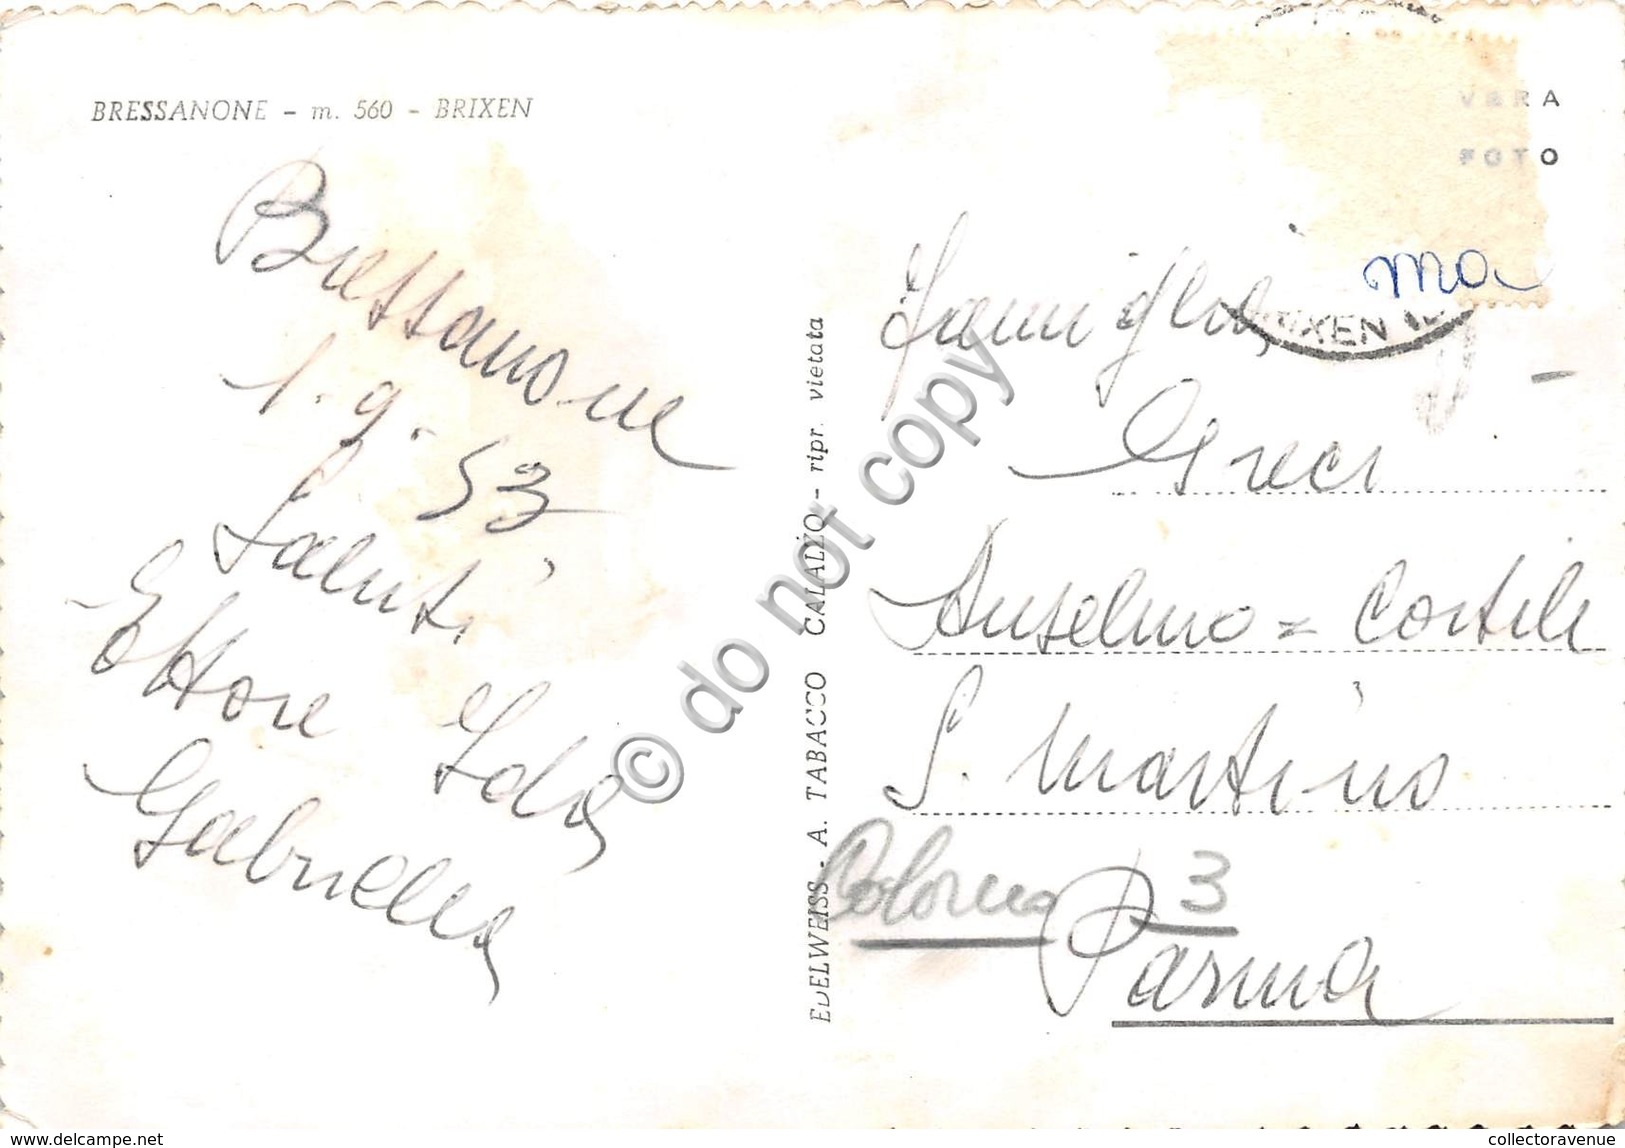 BRESSANONE - m. 560 - BRIXEN
VERA
FOTO
Bressanone
1.9.53
Saluti
Ettore Ida
Gabriella
EDELWEISS - A. TABACCO CALALZO - ripr. vietata
Famiglia
Greci
Anselmo = Cortile
S. Martino
Colorno 3
Parma
ma
IXEN
© do not copy
www.delcampe.net
collectoravenue